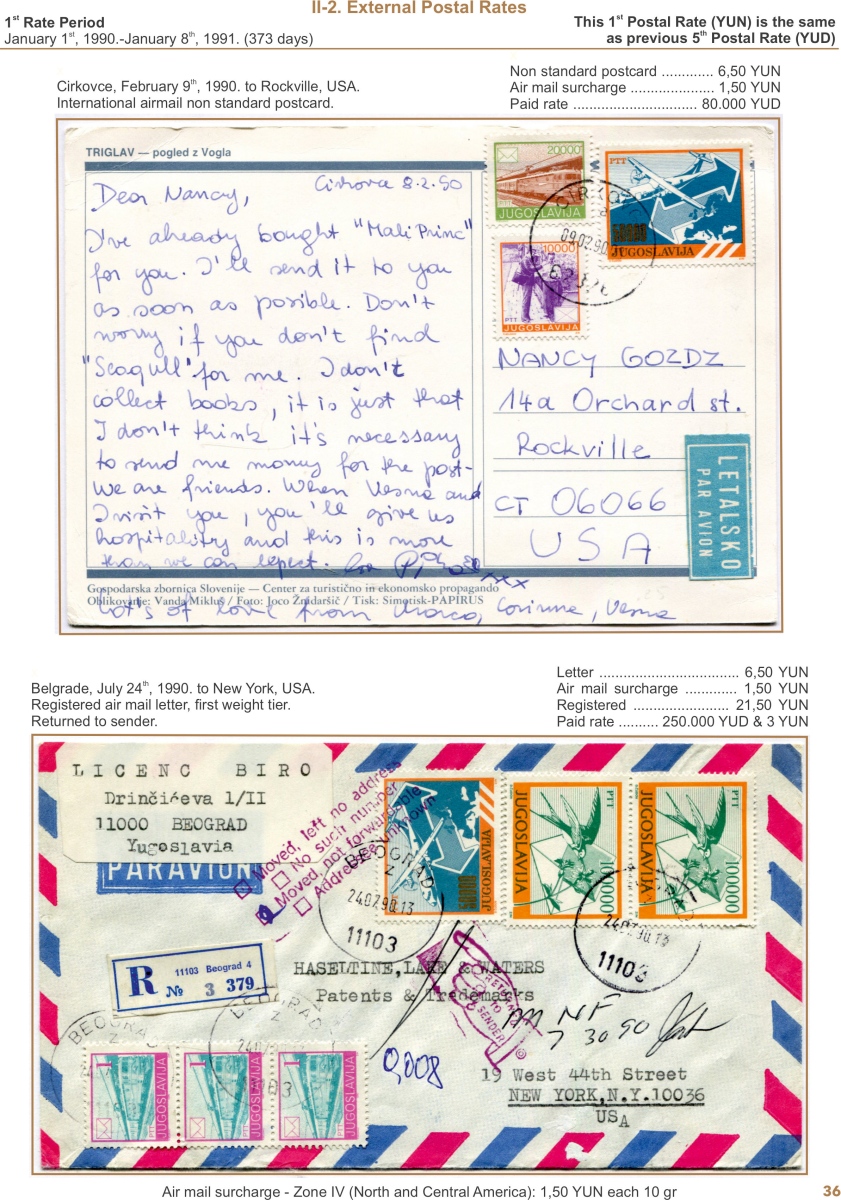 II-2. External Postal Rates
1st Rate Period
January 1st, 1990.-January 8th, 1991. (373 days)
This 1st Postal Rate (YUN) is the same
as previous 5th Postal Rate (YUD)
Cirkovce, February 9th, 1990. to Rockville, USA.
International airmail non standard postcard.
Non standard postcard ............. 6,50 YUN
Air mail surcharge ..................... 1,50 YUN
Paid rate ............................... 80.000 YUD
TRIGLAV — pogled z Vogla
Cirkovce 8.2.90
Dear Nancy,
I've already bought "Mali Princ"
for you. I'll send it to you
as soon as posible. Don't
worry if you don't find
"Seagull" for me. I don't
collect books, it is just that
I don't think it's necessary
to send me money for the post-
we are friends. When Vesna and
I visit you, you'll give us
hospitality and this is more
than we can expect.
Lot's of love from Corinna, Vesna
Gospodarska zbornica Slovenije — Center za turistično in ekonomsko propagando
Oblikovanje: Vanda Mikluš / Foto: Joco Žnidaršič / Tisk: Simgrisk-PAPIRUS
20000
JUGOSLAVIJA
PTT
JUGOSLAVIJA
10000
PTT
JUGOSLAVIJA
09.02.90
NANCY GOZDZ
14a Orchard st.
Rockville
CT 06066
USA
LETALSKO
PAR AVION
Belgrade, July 24th, 1990. to New York, USA.
Registered air mail letter, first weight tier.
Returned to sender.
Letter ................................... 6,50 YUN
Air mail surcharge ............. 1,50 YUN
Registered ........................ 21,50 YUN
Paid rate .......... 250.000 YUD & 3 YUN
LICENC BIRO
Drinčićeva 1/II
11000 BEOGRAD
Yugoslavia
PAR AVION
Moved, left no address
No such number
Moved, not forwardable
Addressee unknown
JUGOSLAVIJA
PTT
100000
JUGOSLAVIJA
PTT
100000
JUGOSLAVIJA
BEOGRAD
2
24.07.90.13
11103
24.07.90.13
11103
R
11103 Beograd 4
№ 3 379
HASELTINE, LAKE & WATERS
Patents & Trademarks
RETURN
TO
SENDER
M N F
7 30 90
0,008
19 West 44th Street
NEW YORK,N.Y.10036
USA
BEOGRAD
2
BEOGRAD
2
1
PTT
JUGOSLAVIJA
1
PTT
JUGOSLAVIJA
1
PTT
JUGOSLAVIJA
Air mail surcharge - Zone IV (North and Central America): 1,50 YUN each 10 gr
36